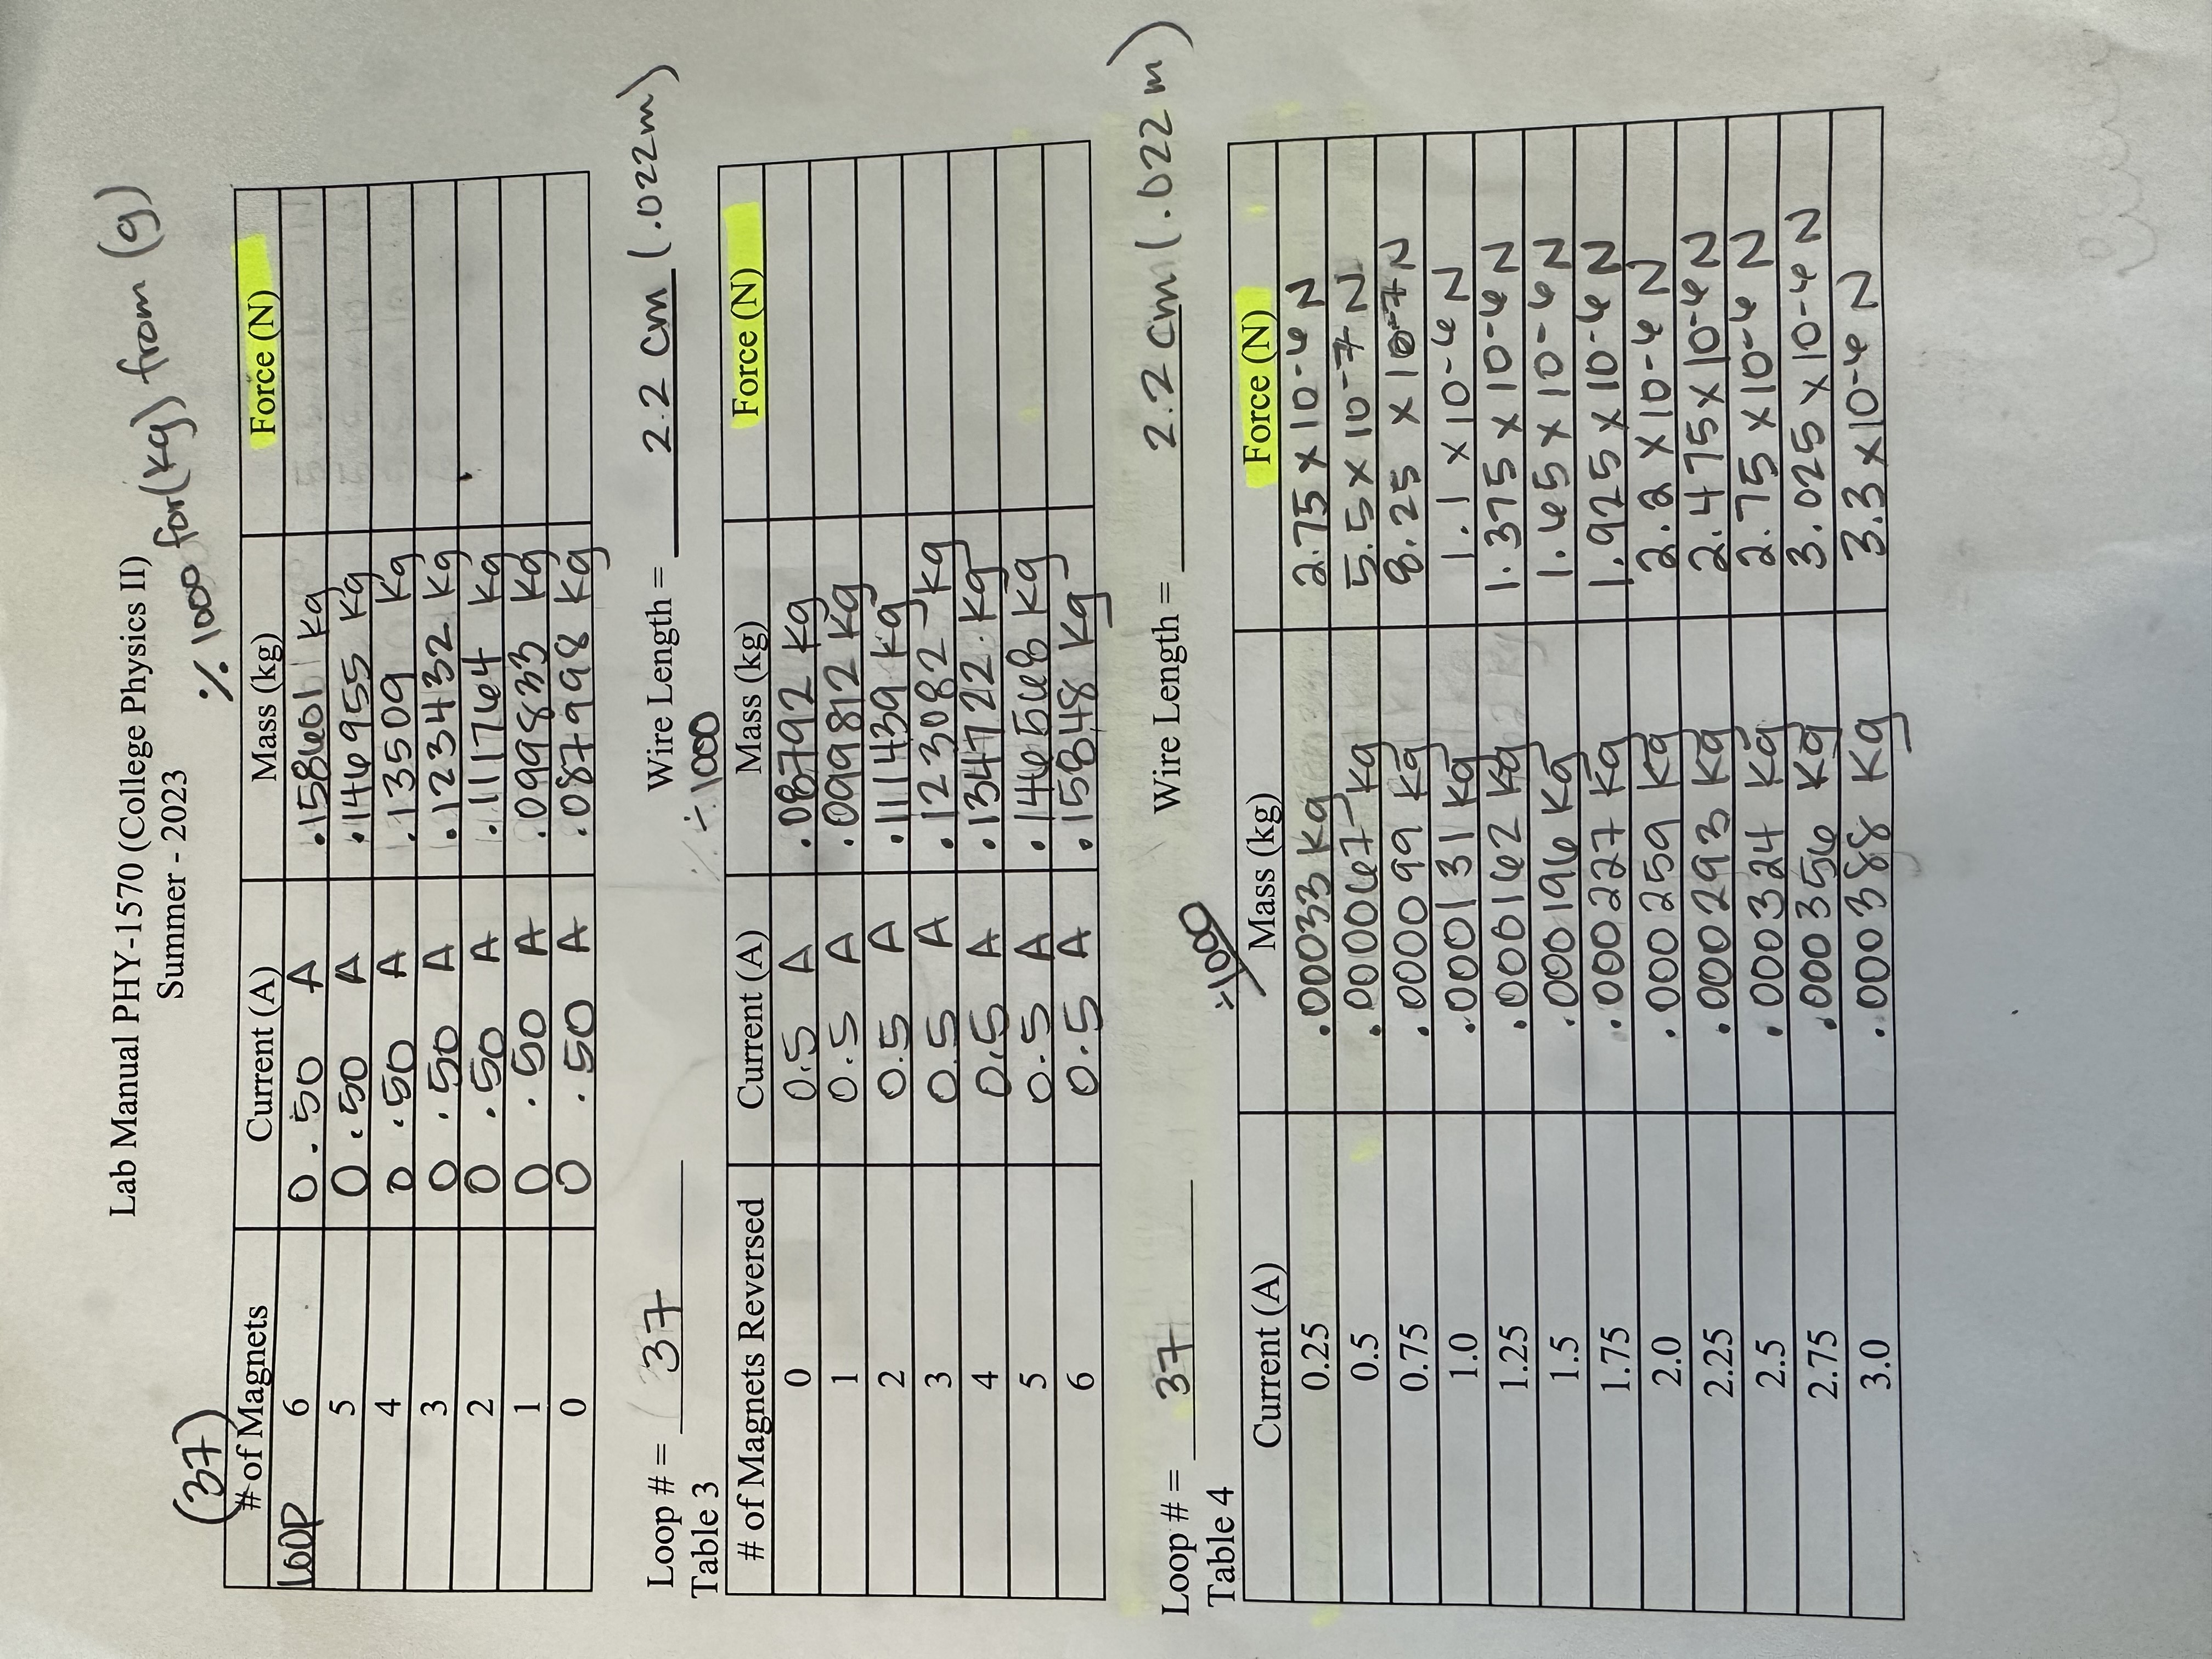 Lab Manual PHY-1570 (College Physics II)
Summer - 2023
(37)
% 1000 for (kg) from (g)
# of Magnets Current (A) Mass (kg) Force (N)
loop 6 0.50 A .158601 kg
5 0.50 A .146955 kg
4 0.50 A .13509 kg
3 0.50 A .123432 kg
2 0.50 A .111764 kg
1 0.50 A .099833 kg
0 0.50 A .087998 kg
Loop # = 37 Wire Length = 2.2 cm (.022m)
Table 3
÷ 1000
# of Magnets Reversed Current (A) Mass (kg) Force (N)
0 0.5 A .08792 kg
1 0.5 A .099812 kg
2 0.5 A .111439 kg
3 0.5 A .123082 kg
4 0.5 A .134722 kg
5 0.5 A .146568 kg
6 0.5 A .15848 kg
Loop # = 37 Wire Length = 2.2 cm (.022 m)
Table 4
÷1000
Current (A) Mass (kg) Force (N)
0.25 .00033 kg 2.75 x 10-6 N
0.5 .000067 kg 5.5 x 10-7 N
0.75 .000099 kg 8.25 x 10-7 N
1.0 .000131 kg 1.1 x 10-6 N
1.25 .000162 kg 1.375 x 10-6 N
1.5 .000196 kg 1.65 x 10-6 N
1.75 .000227 kg 1.925 x 10-6 N
2.0 .000259 kg 2.2 x 10-6 N
2.25 .000293 kg 2.475 x 10-6 N
2.5 .000324 kg 2.75 x 10-6 N
2.75 .000356 kg 3.025 x 10-6 N
3.0 .000388 kg 3.3 x 10-6 N